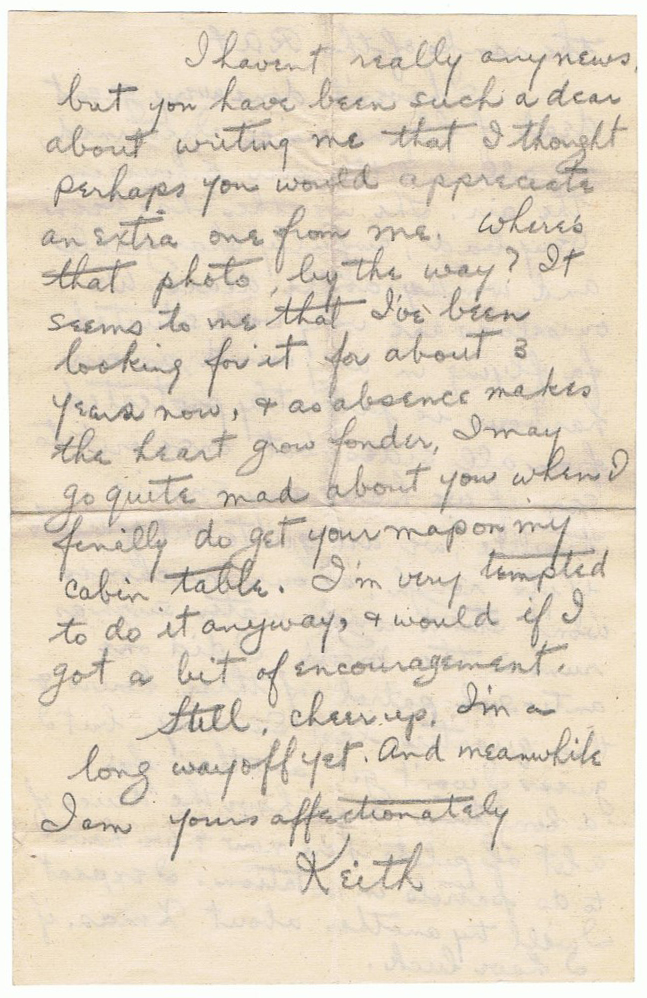 I havent really any news,
but you have been such a dear
about writing me that I thought
perhaps you would appreciate
an extra one from me. Where's
that photo, by the way? It
seems to me that I've been
looking for it for about 3
years now, & as absence makes
the heart grow fonder, I may
go quite mad about you when I
finally do get your map on my
cabin table. I'm very tempted
to do it anyway, & would if I
got a bit of encouragement.
Still, cheer up, I'm a
long way off yet. And meanwhile
I am yours affectionately
Keith